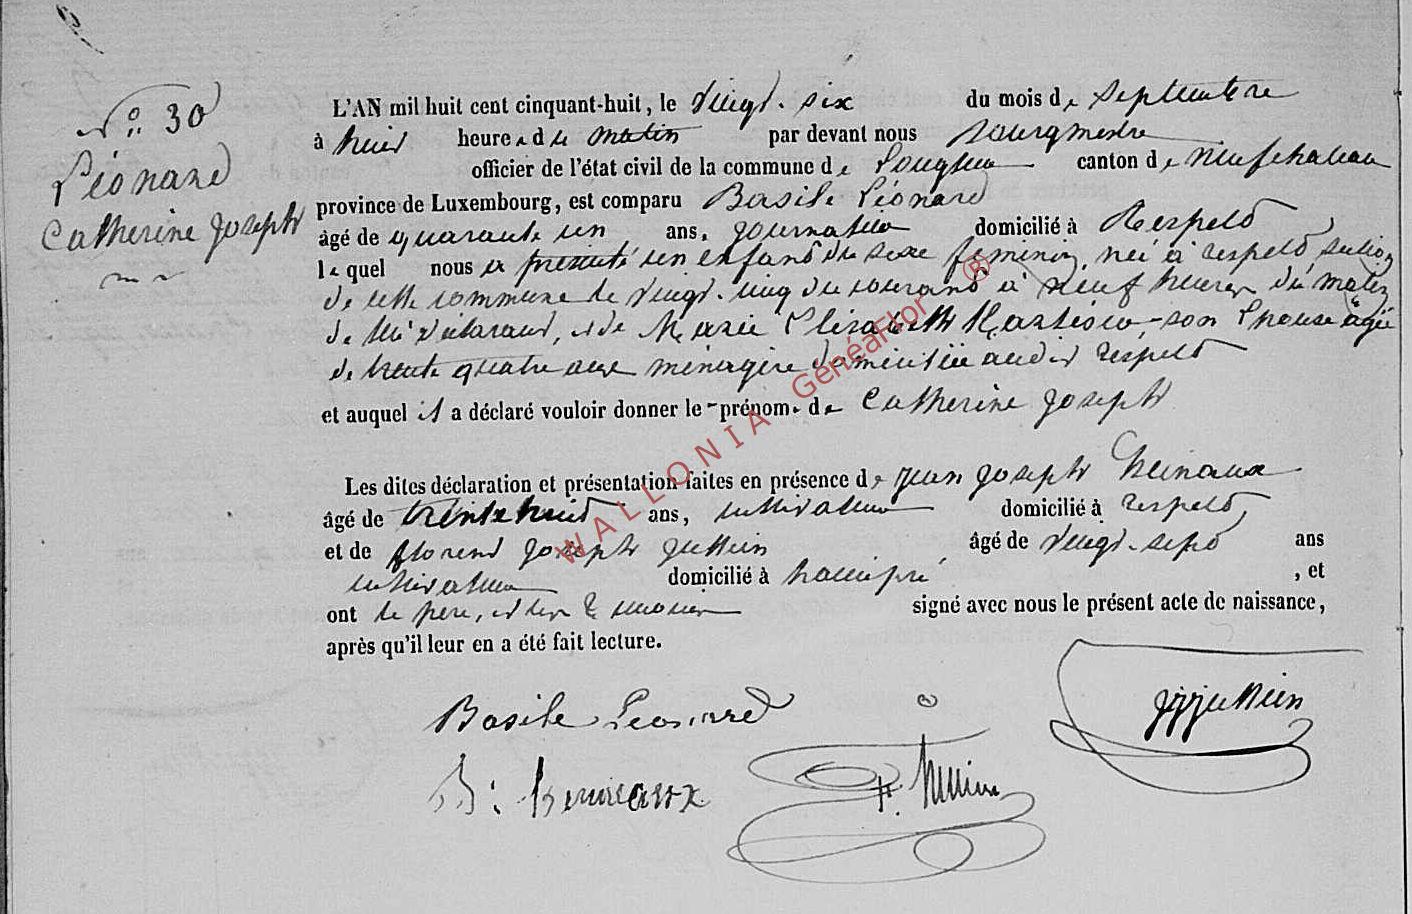 N° 30
Léonard
Catherine Joseph
L'AN mil huit cent cinquant-huit, le vingt-six du mois de septembre
à huit heures du matin par devant nous Bourgmestre
officier de l'état civil de la commune de Longlier canton de Neufchateau
province de Luxembourg, est comparu Basile Léonard
âgé de quarante un ans, journalier domicilié à Respelt
lequel nous a présenté un enfant du sexe feminin, née à respelt section
de cette commune le vingt-cinq du courant à neuf heures du matin
de lui déclarant, et de Marie Elisabeth son Epouse âgée
de trente quatre ans ménagère domiciliée audit respelt
et auquel il a déclaré vouloir donner le prénom de Catherine Joseph
Les dites déclaration et présentation faites en présence de Jean Joseph
âgé de trente huit ans, cultivateur domicilié à respelt,
et de florent Joseph âgé de vingt-sept ans
cultivateur domicilié à hamipré , et
ont le père, et les témoins signé avec nous le présent acte de naissance,
après qu'il leur en a été fait lecture.
Basile Leonard
WALLONIA GenéaFlor ®